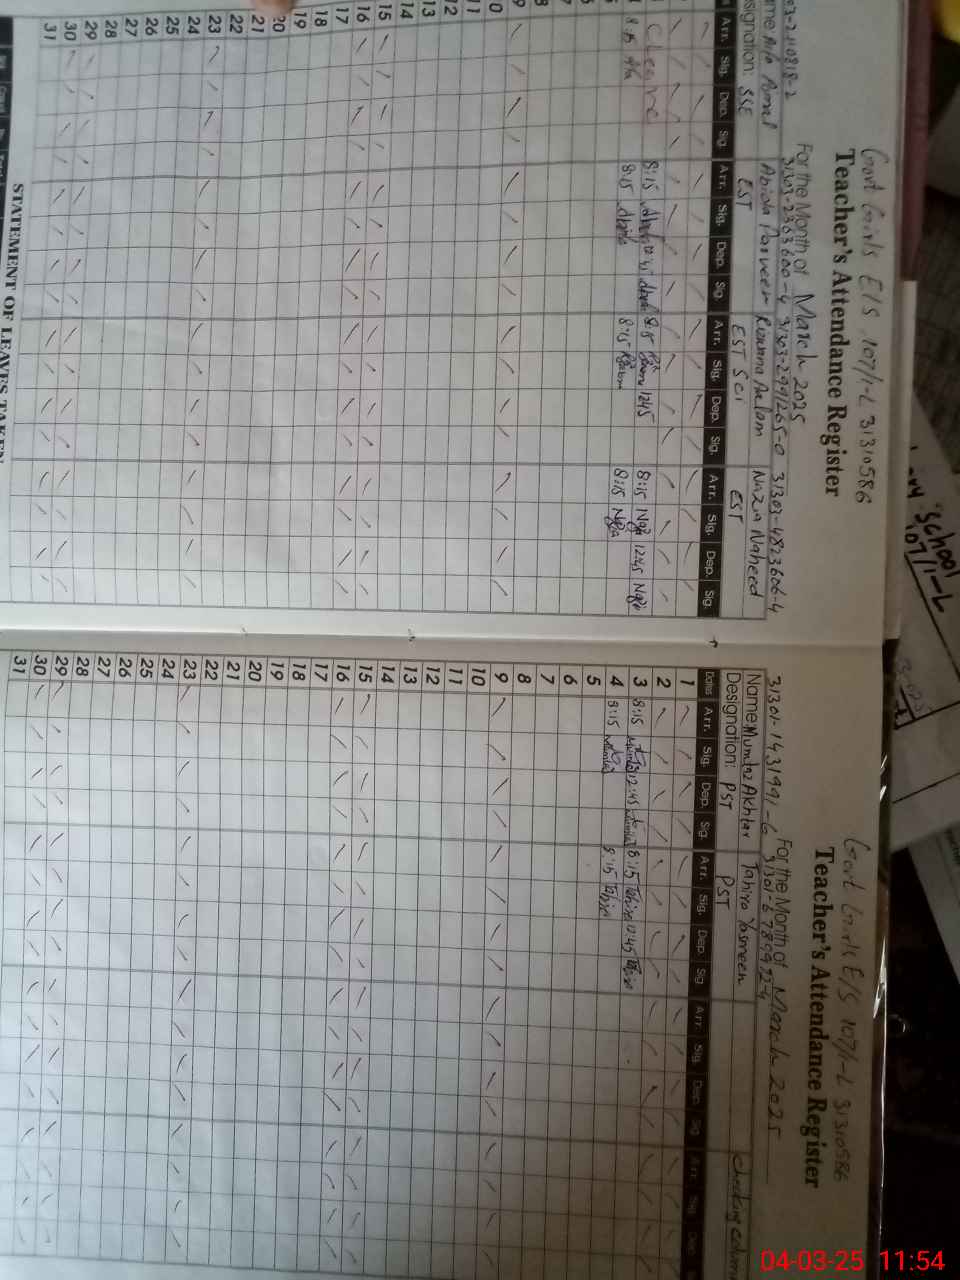 Govt Girls E/S 107/1-L 31310586
Teacher's Attendance Register
For the Month of March 2025
31303-2363600-4 31303-2991265-0 31303-4823606-4
Abida Parveen Ruxana Aslam Nazia Naheed
Designation: SSE EST EST Sci EST
Arr. Sig. Dep. Sig. Arr. Sig. Dep. Sig. Arr. Sig. Dep. Sig. Arr. Sig. Dep. Sig.
C Leave 8:15 8:15 1245 8:15 Nazia 12:45 Nazia
8:15 8:15 Abida 8:15 8:15 Nazia
9
10
11
12
13
14
15
16
17
18
19
20
21
22
23
24
25
26
27
28
29
30
31
STATEMENT OF LEAVES TAKEN
Govt Girls E/S 107/1-L 31310586
Teacher's Attendance Register
For the Month of March 2025
31301-1431991-6 31301-6789972-4
Name: Mumtaz Akhtar Tahira Yasmeen
Designation: PST PST Checking Column
Dates Arr. Sig. Dep. Sig. Arr. Sig. Dep. Sig. Arr. Sig. Dep. Sig. Arr. Sig. Dep.
1
2
3 8:15 Mumtaz 12:45 Mumtaz 8:15 Tahira 12:45 Tahira
4 8:15 Mumtaz 8:15 Tahira
5
6
7
8
9
10
11
12
13
14
15
16
17
18
19
20
21
22
23
24
25
26
27
28
29
30
31
School
107/1-L
04-03-25 11:54